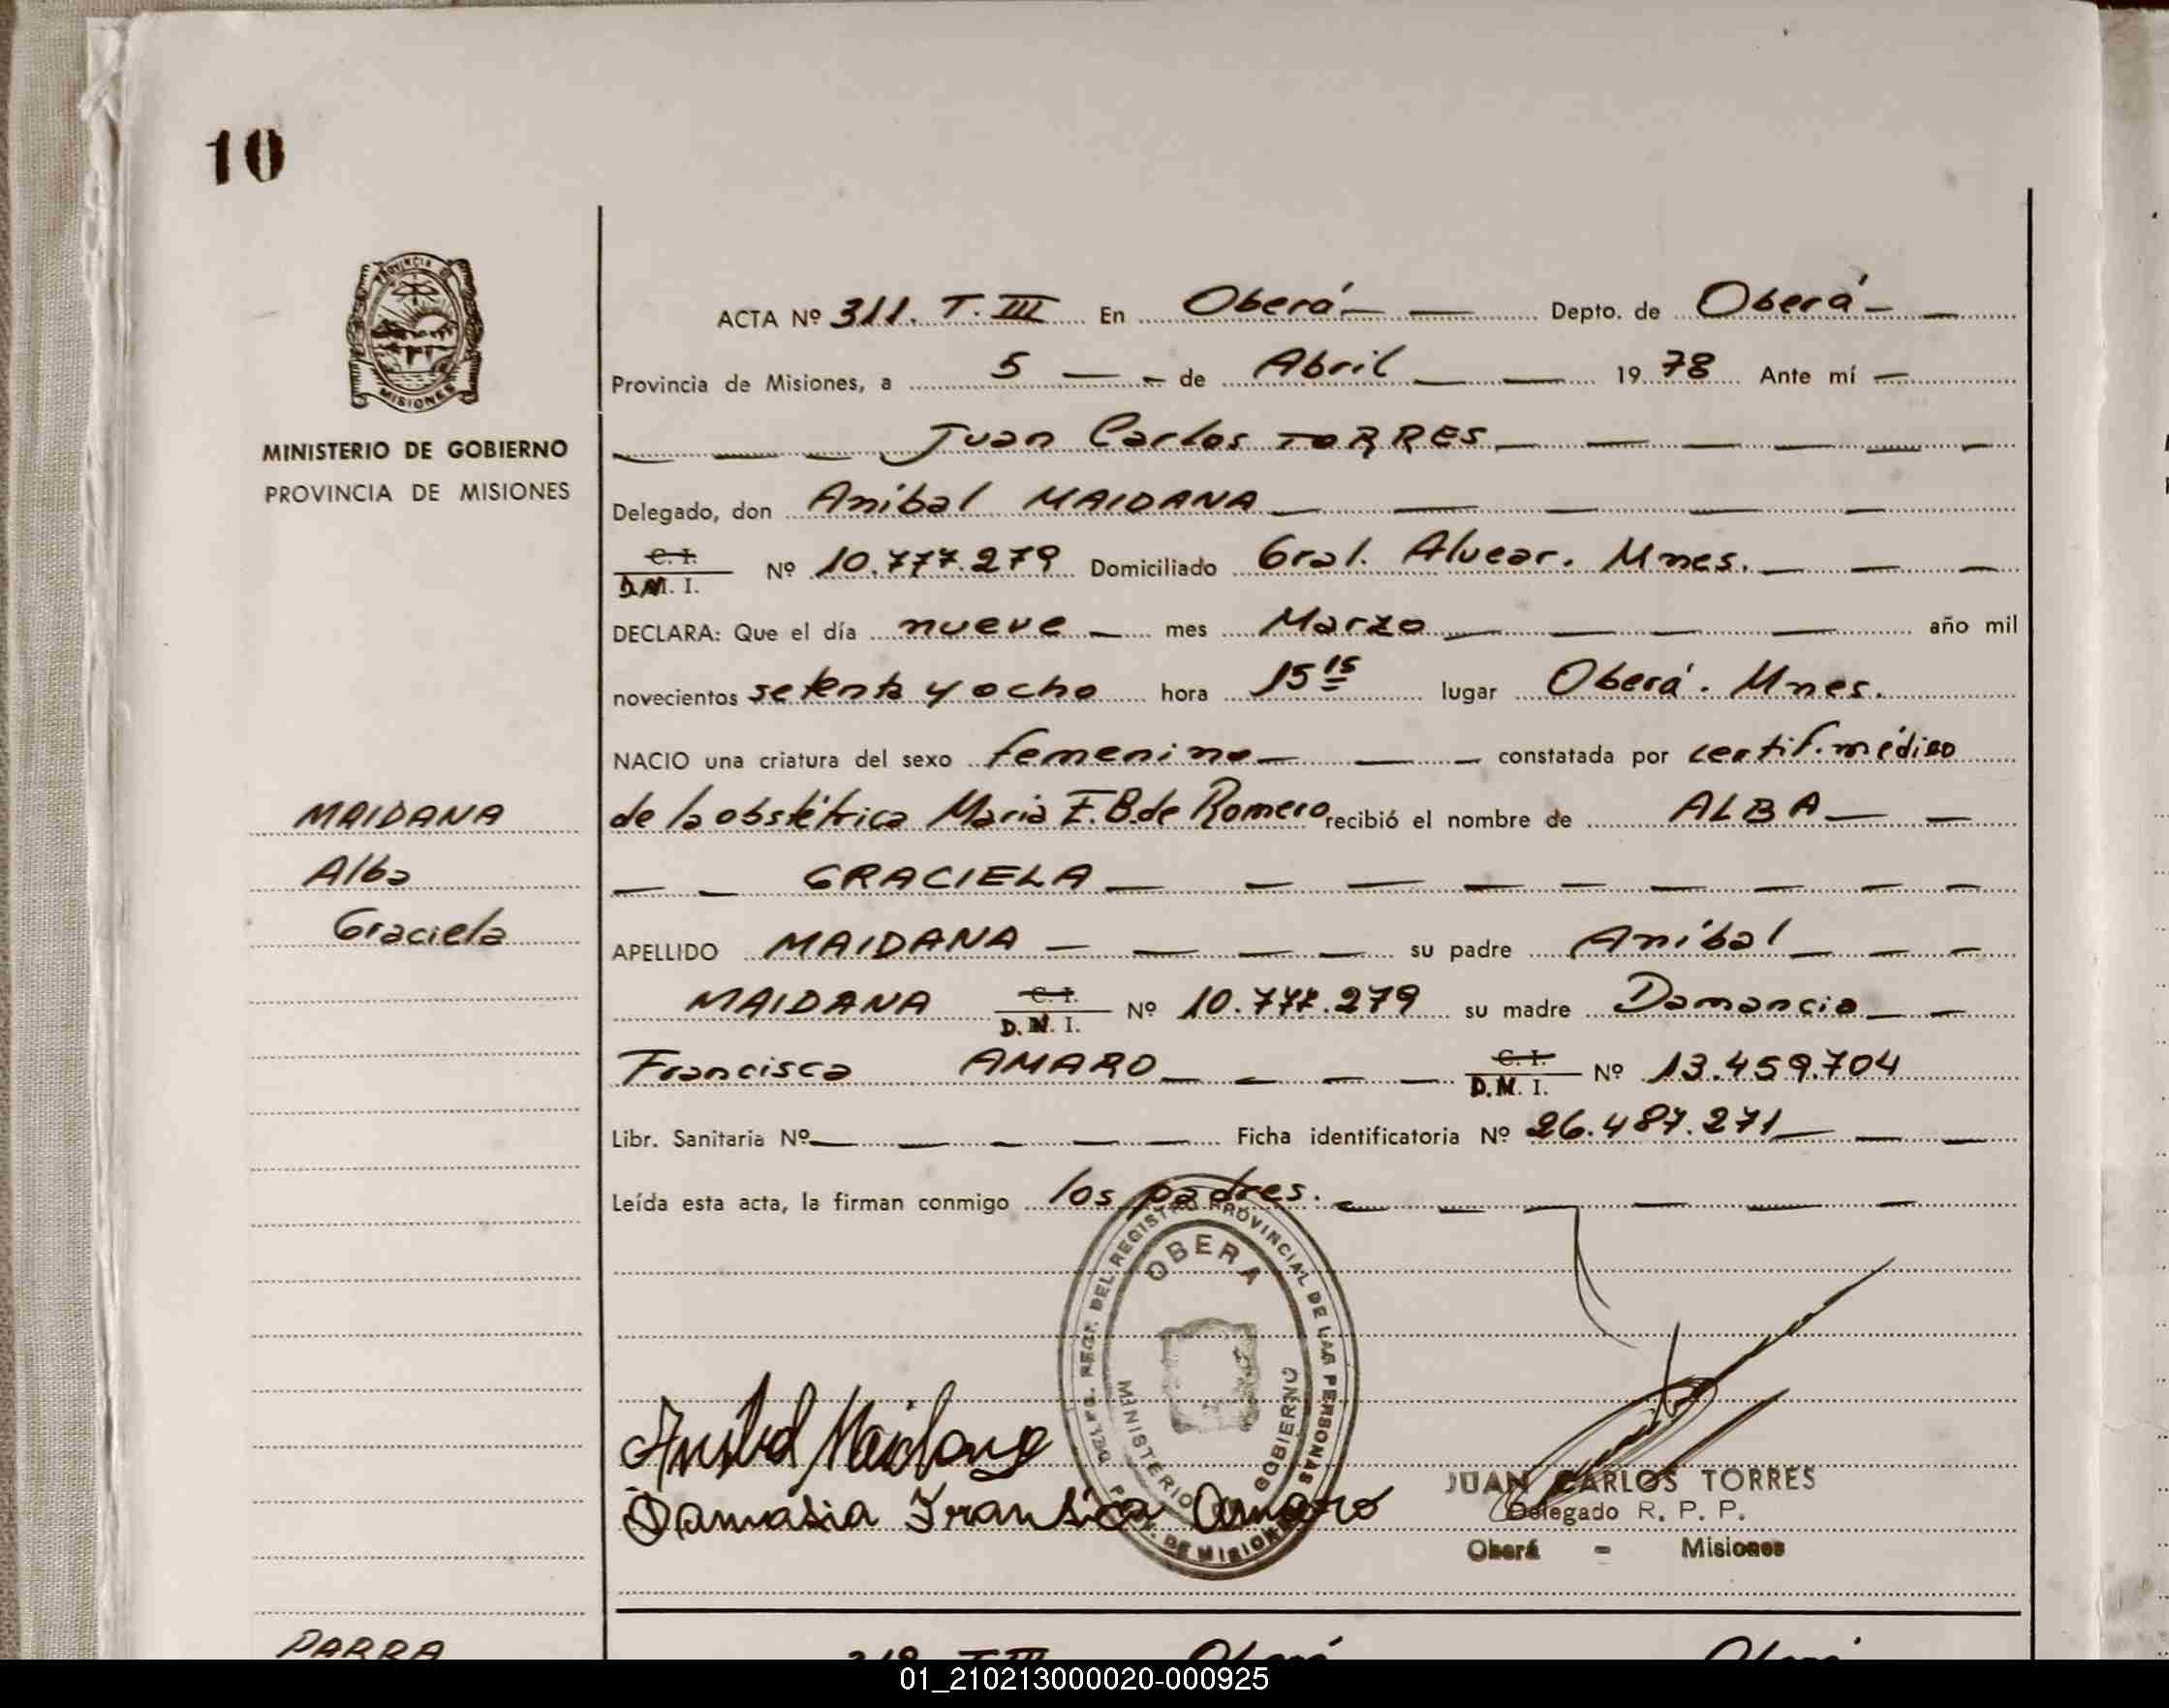 10
PROVINCIA DE
MISIONES
MINISTERIO DE GOBIERNO
PROVINCIA DE MISIONES
ACTA Nº 311. T. III En Oberá Depto. de Oberá
Provincia de Misiones, a 5 de Abril 1978 Ante mí
Juan Carlos TORRES
Delegado, don Aníbal MAIDANA
C. I.
D.N. I. Nº 10.777.279 Domiciliado Gral. Alvear. Mnes.
DECLARA: Que el día nueve mes Marzo año mil
novecientos setenta y ocho hora 15 15 lugar Oberá. Mnes.
NACIO una criatura del sexo femenino constatada por certif. médico
de la obstétrica Maria E. B. de Romero recibió el nombre de ALBA
GRACIELA
MAIDANA
Alba
Graciela
APELLIDO MAIDANA su padre Aníbal
MAIDANA C. I.
D. N. I. Nº 10.777.279 su madre Damancia
Francisca AMARO C. I.
D. N. I. Nº 13.459.704
Libr. Sanitaria Nº Ficha identificatoria Nº 26.487.271
Leída esta acta, la firman conmigo los padres.
DEL REGISTRO PROVINCIAL DE LAS PERSONAS
OBERA
MINISTERIO GOBIERNO
DE MISIONES
Anibal Maidana
Damasia Fransica Amaro
JUAN CARLOS TORRES
Delegado R. P. P.
Oberá - Misiones
PARRA
01_210213000020-000925